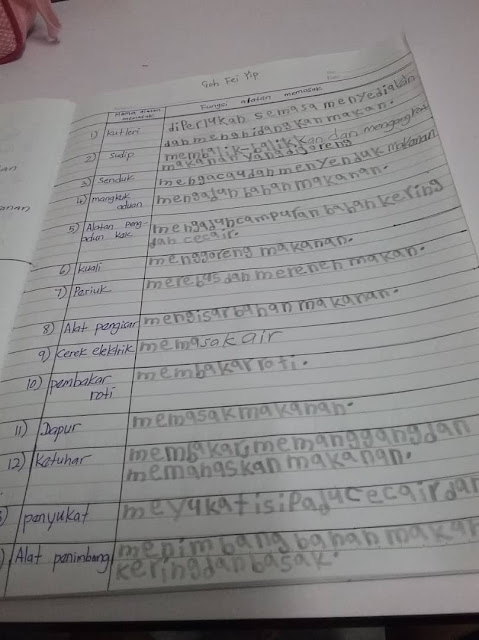 Goh Fei Yip
Nama alatan memasak Fungsi alatan memasak
1) kutleri diperlukan semasa menyediakan
dan menghidangkan makan.
2) Sudip membalik-balikkan dan mengangkat
makanan yang digoreng
3) Senduk mengacau dan menyenduk makanan
4) mangkuk adunan mengadun bahan makanan.
5) Alatan peng-
adun kek mengadun campuran bahan kering
dan cecair.
6) kuali menggoreng makanan.
7) Periuk merebus dan mereneh makan.
8) Alat pengisar mengisar bahan makanan.
9) Cerek elektrik memasak air
10) pembakar
roti membakar roti.
11) Dapur memasak makanan.
12) Ketuhar membakar, memanggang dan
memanaskan makanan.
) penyukat meyukat isi padu cecair dan
) Alat penimbang menimbang bahan makan
kering dan basak.